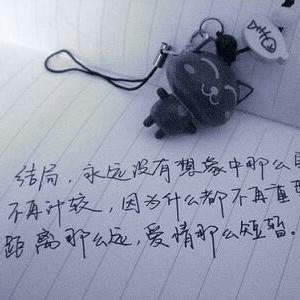 结局，永远没有想象中那么
不再计较，因为什么都不再重
距离那么远，爱情那么短暂。